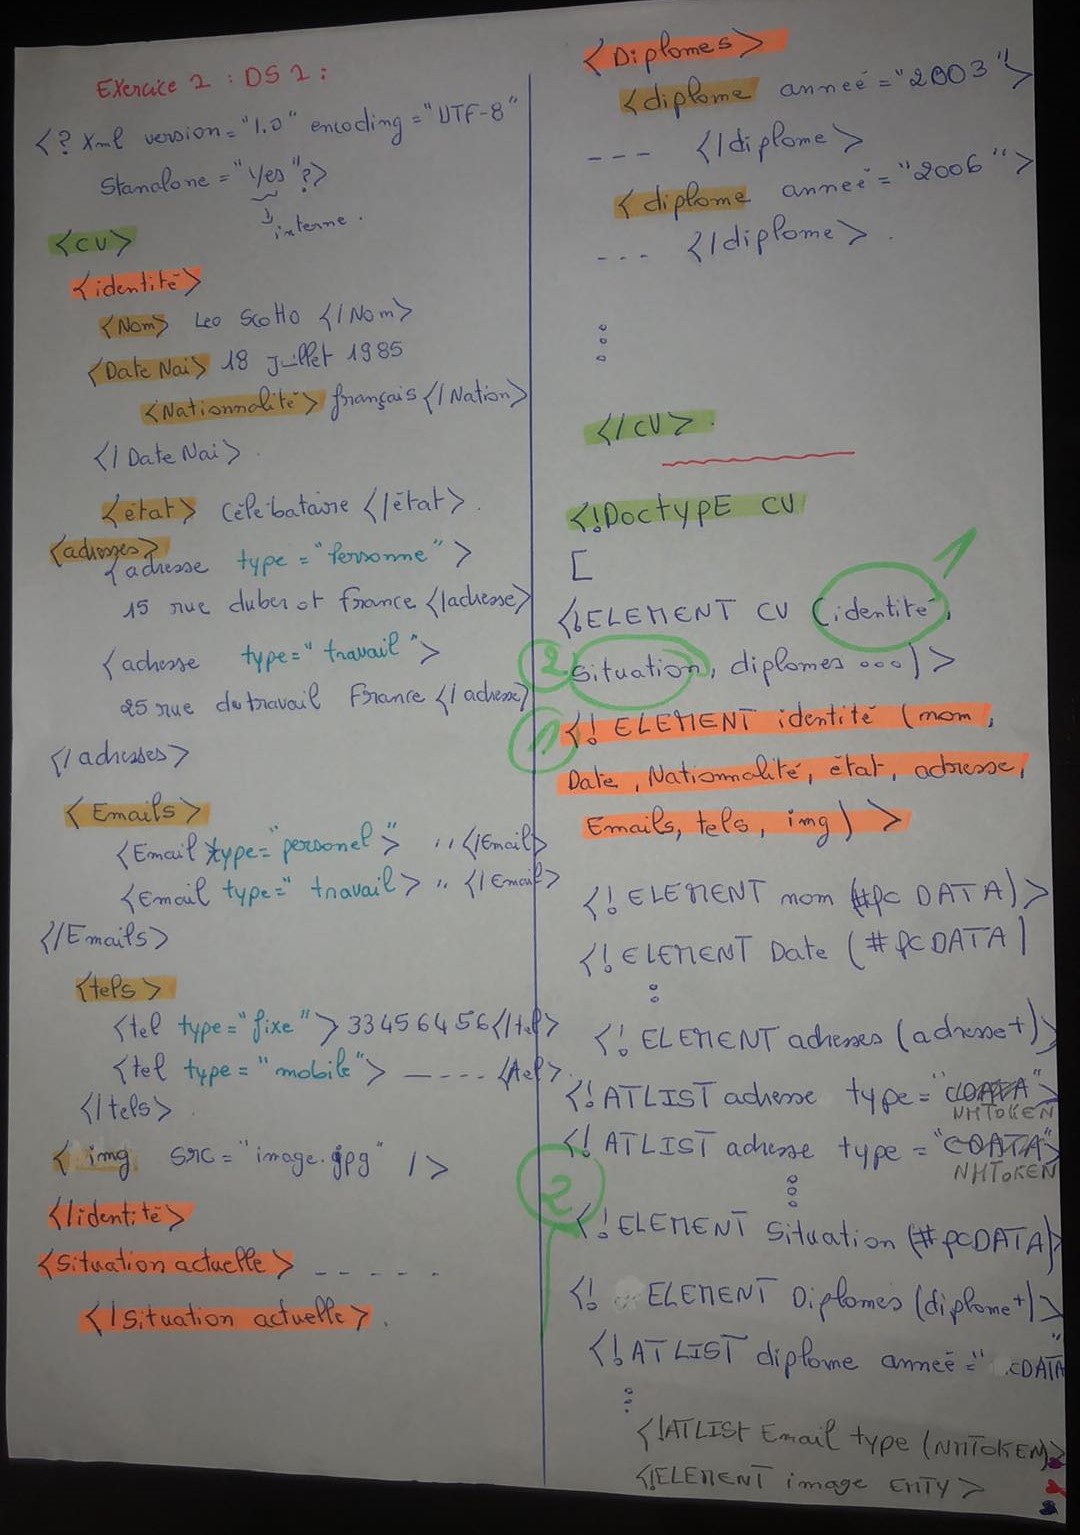 Exercice 2 : DS 1 :
<? Xml version="1.0" encoding="UTF-8"
Standalone="Yes"?>
interne.
<CV>
<identité>
<Nom> Leo Scotto </Nom>
<Date Nai> 18 Juillet 1985
<Nationnalité> français </Nation>
</Date Nai>.
<état> Célebataire </état>.
<adresses>
<adresse type="Personne">
15 rue duberot france </adresse>
<adresse type="travail">
25 rue du travail France </adresse>
</adresses>
<Emails>
<Email type="personel"> " </Email>
<Email type="travail> " </Email>
</Emails>
<tels>
<tel type="fixe"> 33456456</tel>
<tel type="mobile"> ----- </tel>.
</tels>.
<img src="image.jpg" />
</identité>
<Situation actuelle> -----
</Situation actuelle>.
<Diplomes>
<diplome anneé="2003">
--- </diplome>
<diplome anneé="2006">
--- </diplome>.
</CV>.
<!DoctypE CV
[
<!ELEMENT CV (identité, 1
2 Situation, diplomes ...)>
1 <! ELEMENT identité (nom,
Date, Nationnalité, état, adresse,
Emails, tels, img)>
<! ELEMENT nom (#pc DATA)>
<! ELEMENT Date (#PCDATA)
<! ELEMENT adresses (adresse+)>
<! ATLIST adresse type="CDATA">
NMTOKEN
<! ATLIST adresse type="CDATA">
NMTOKEN
2
<! ELEMENT Situation (#PCDATA)>
<! ELEMENT Diplomes (diplome+)>
<! ATLIST diplome anneé="CDATA"
<!ATLISt Email type (NMTOKEN)>
<!ELEMENT image EMTY>